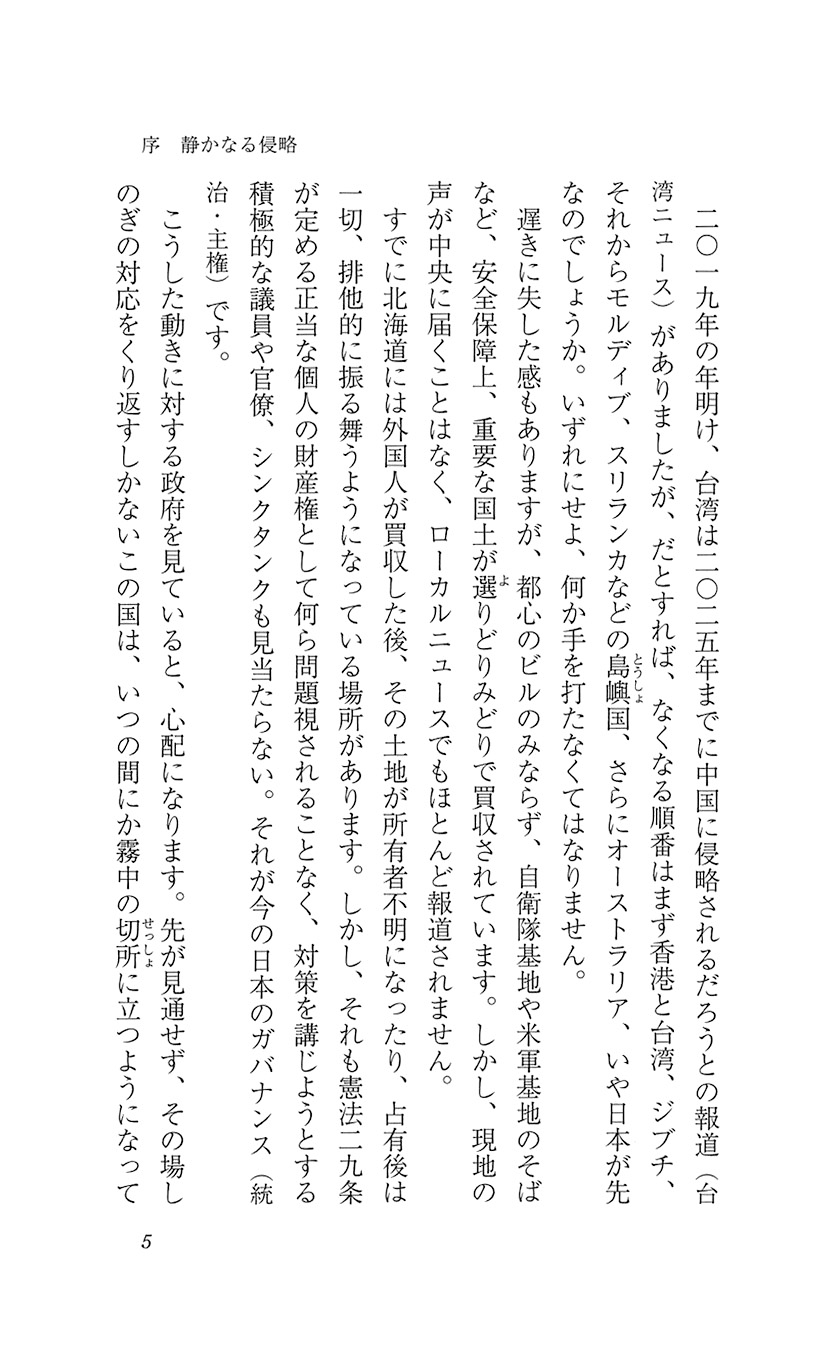 序　静かなる侵略
　二〇一九年の年明け、台湾は二〇二五年までに中国に侵略されるだろうとの報道（台
湾ニュース）がありましたが、だとすれば、なくなる順番はまず香港と台湾、ジブチ、
それからモルディブ、スリランカなどの島嶼国、さらにオーストラリア、いや日本が先
とうしょ
なのでしょうか。いずれにせよ、何か手を打たなくてはなりません。
　遅きに失した感もありますが、都心のビルのみならず、自衛隊基地や米軍基地のそば
など、安全保障上、重要な国土が選りどりみどりで買収されています。しかし、現地の
よ
声が中央に届くことはなく、ローカルニュースでもほとんど報道されません。
　すでに北海道には外国人が買収した後、その土地が所有者不明になったり、占有後は
一切、排他的に振る舞うようになっている場所があります。しかし、それも憲法二九条
が定める正当な個人の財産権として何ら問題視されることなく、対策を講じようとする
積極的な議員や官僚、シンクタンクも見当たらない。それが今の日本のガバナンス（統
治・主権）です。
　こうした動きに対する政府を見ていると、心配になります。先が見通せず、その場し
のぎの対応をくり返すしかないこの国は、いつの間にか霧中の切所に立つようになって
せっしょ
5